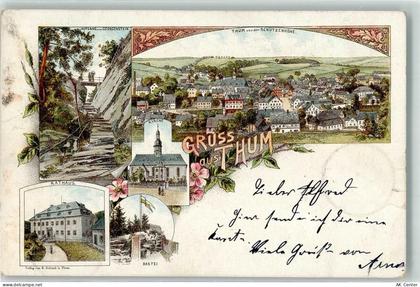 THUM VON DER SCHÜTZENHÖHE
GRUSS
aus THUM
RATHAUS
BASTEI
Lieber Alfred
Hier sende ich dir eine
Karte.
Viele Grüße von
Arno
AK Center